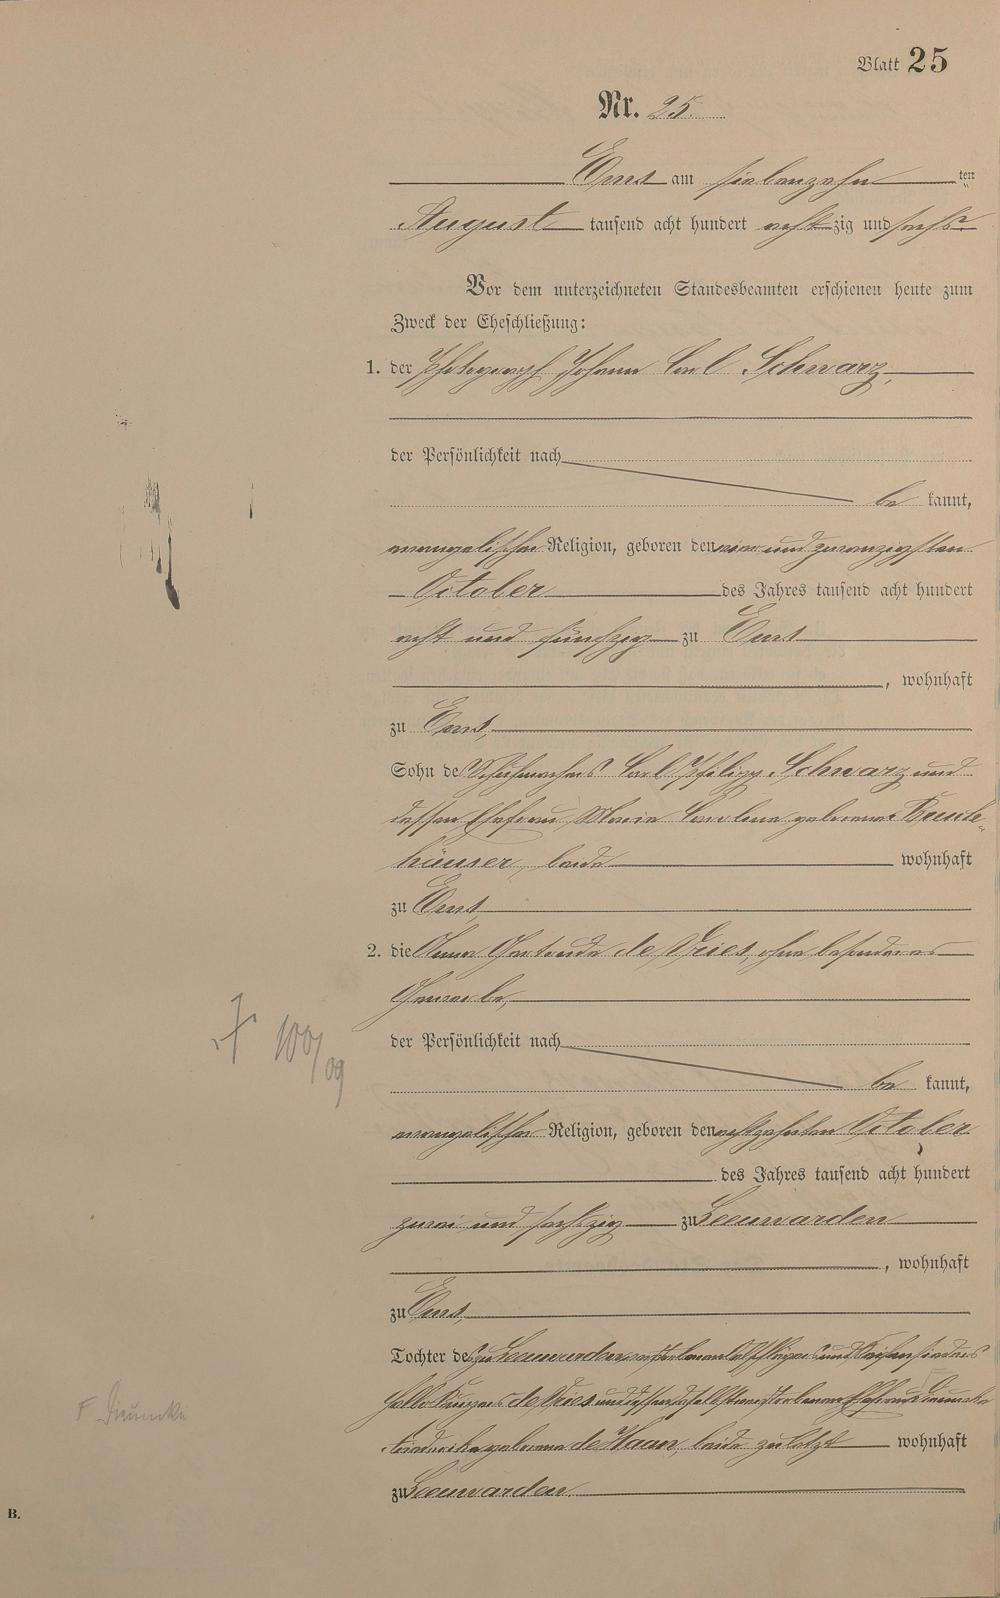 Blatt 25
Nr. 25.
Ems am siebenzehn ten
August tausend acht hundert acht zig und sechs
Vor dem unterzeichneten Standesbeamten erschienen heute zum
Zweck der Eheschließung:
1. der Photograph Johann Carl Schwarz,
der Persönlichkeit nach
be kannt,
evangelischer Religion, geboren den ein und zwanzigsten
October des Jahres tausend acht hundert
acht und fünfzig zu Ems
, wohnhaft
zu Ems,
Sohn des Schuhmachers Carl Philipp Schwarz und
dessen Ehefrau Marie Caroline geborene
häuser, beide wohnhaft
zu Ems
2. die Anna Gertrude de Vries, ohne besonderes
Gewerbe,
der Persönlichkeit nach
be kannt,
evangelischer Religion, geboren den achtzehnten October
des Jahres tausend acht hundert
zwei und sechzig zu Leeuwarden
, wohnhaft
zu Ems,
Tochter des zu Leeuwarden verstorbenen und
de Vries und dessen daselbst verstorbenen Ehefrau
geborene de Haan, beide zuletzt wohnhaft
zu Leeuwarden.
100/09
B.